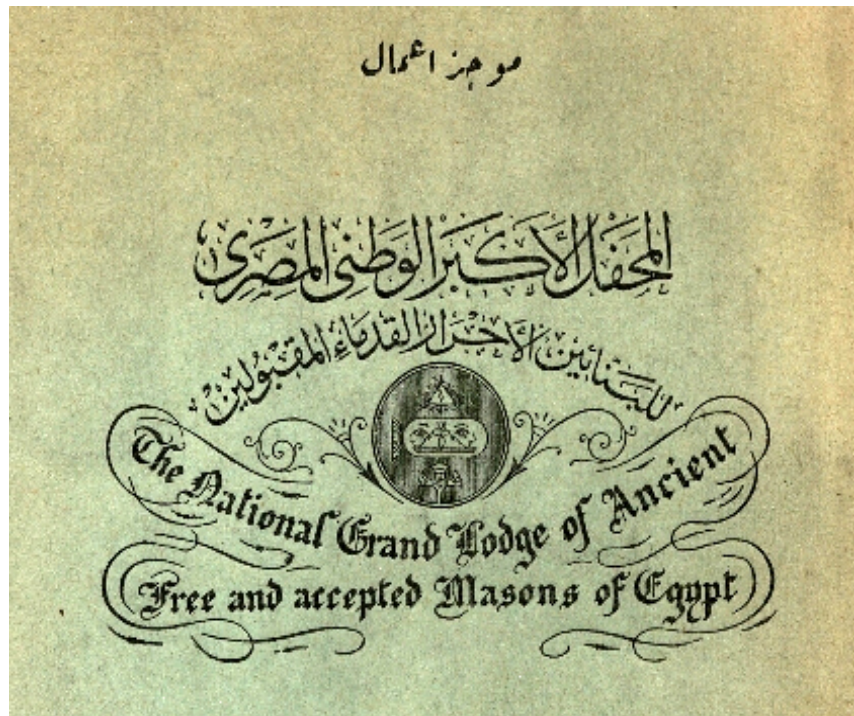 موجز اعمال
المَحفَل الأَكبَر الوَطنى المِصرَى
للبَنائين الأَحرَار القُدمَاءِ المَقبُولين
The National Grand Lodge of Ancient
Free and accepted Masons of Egypt